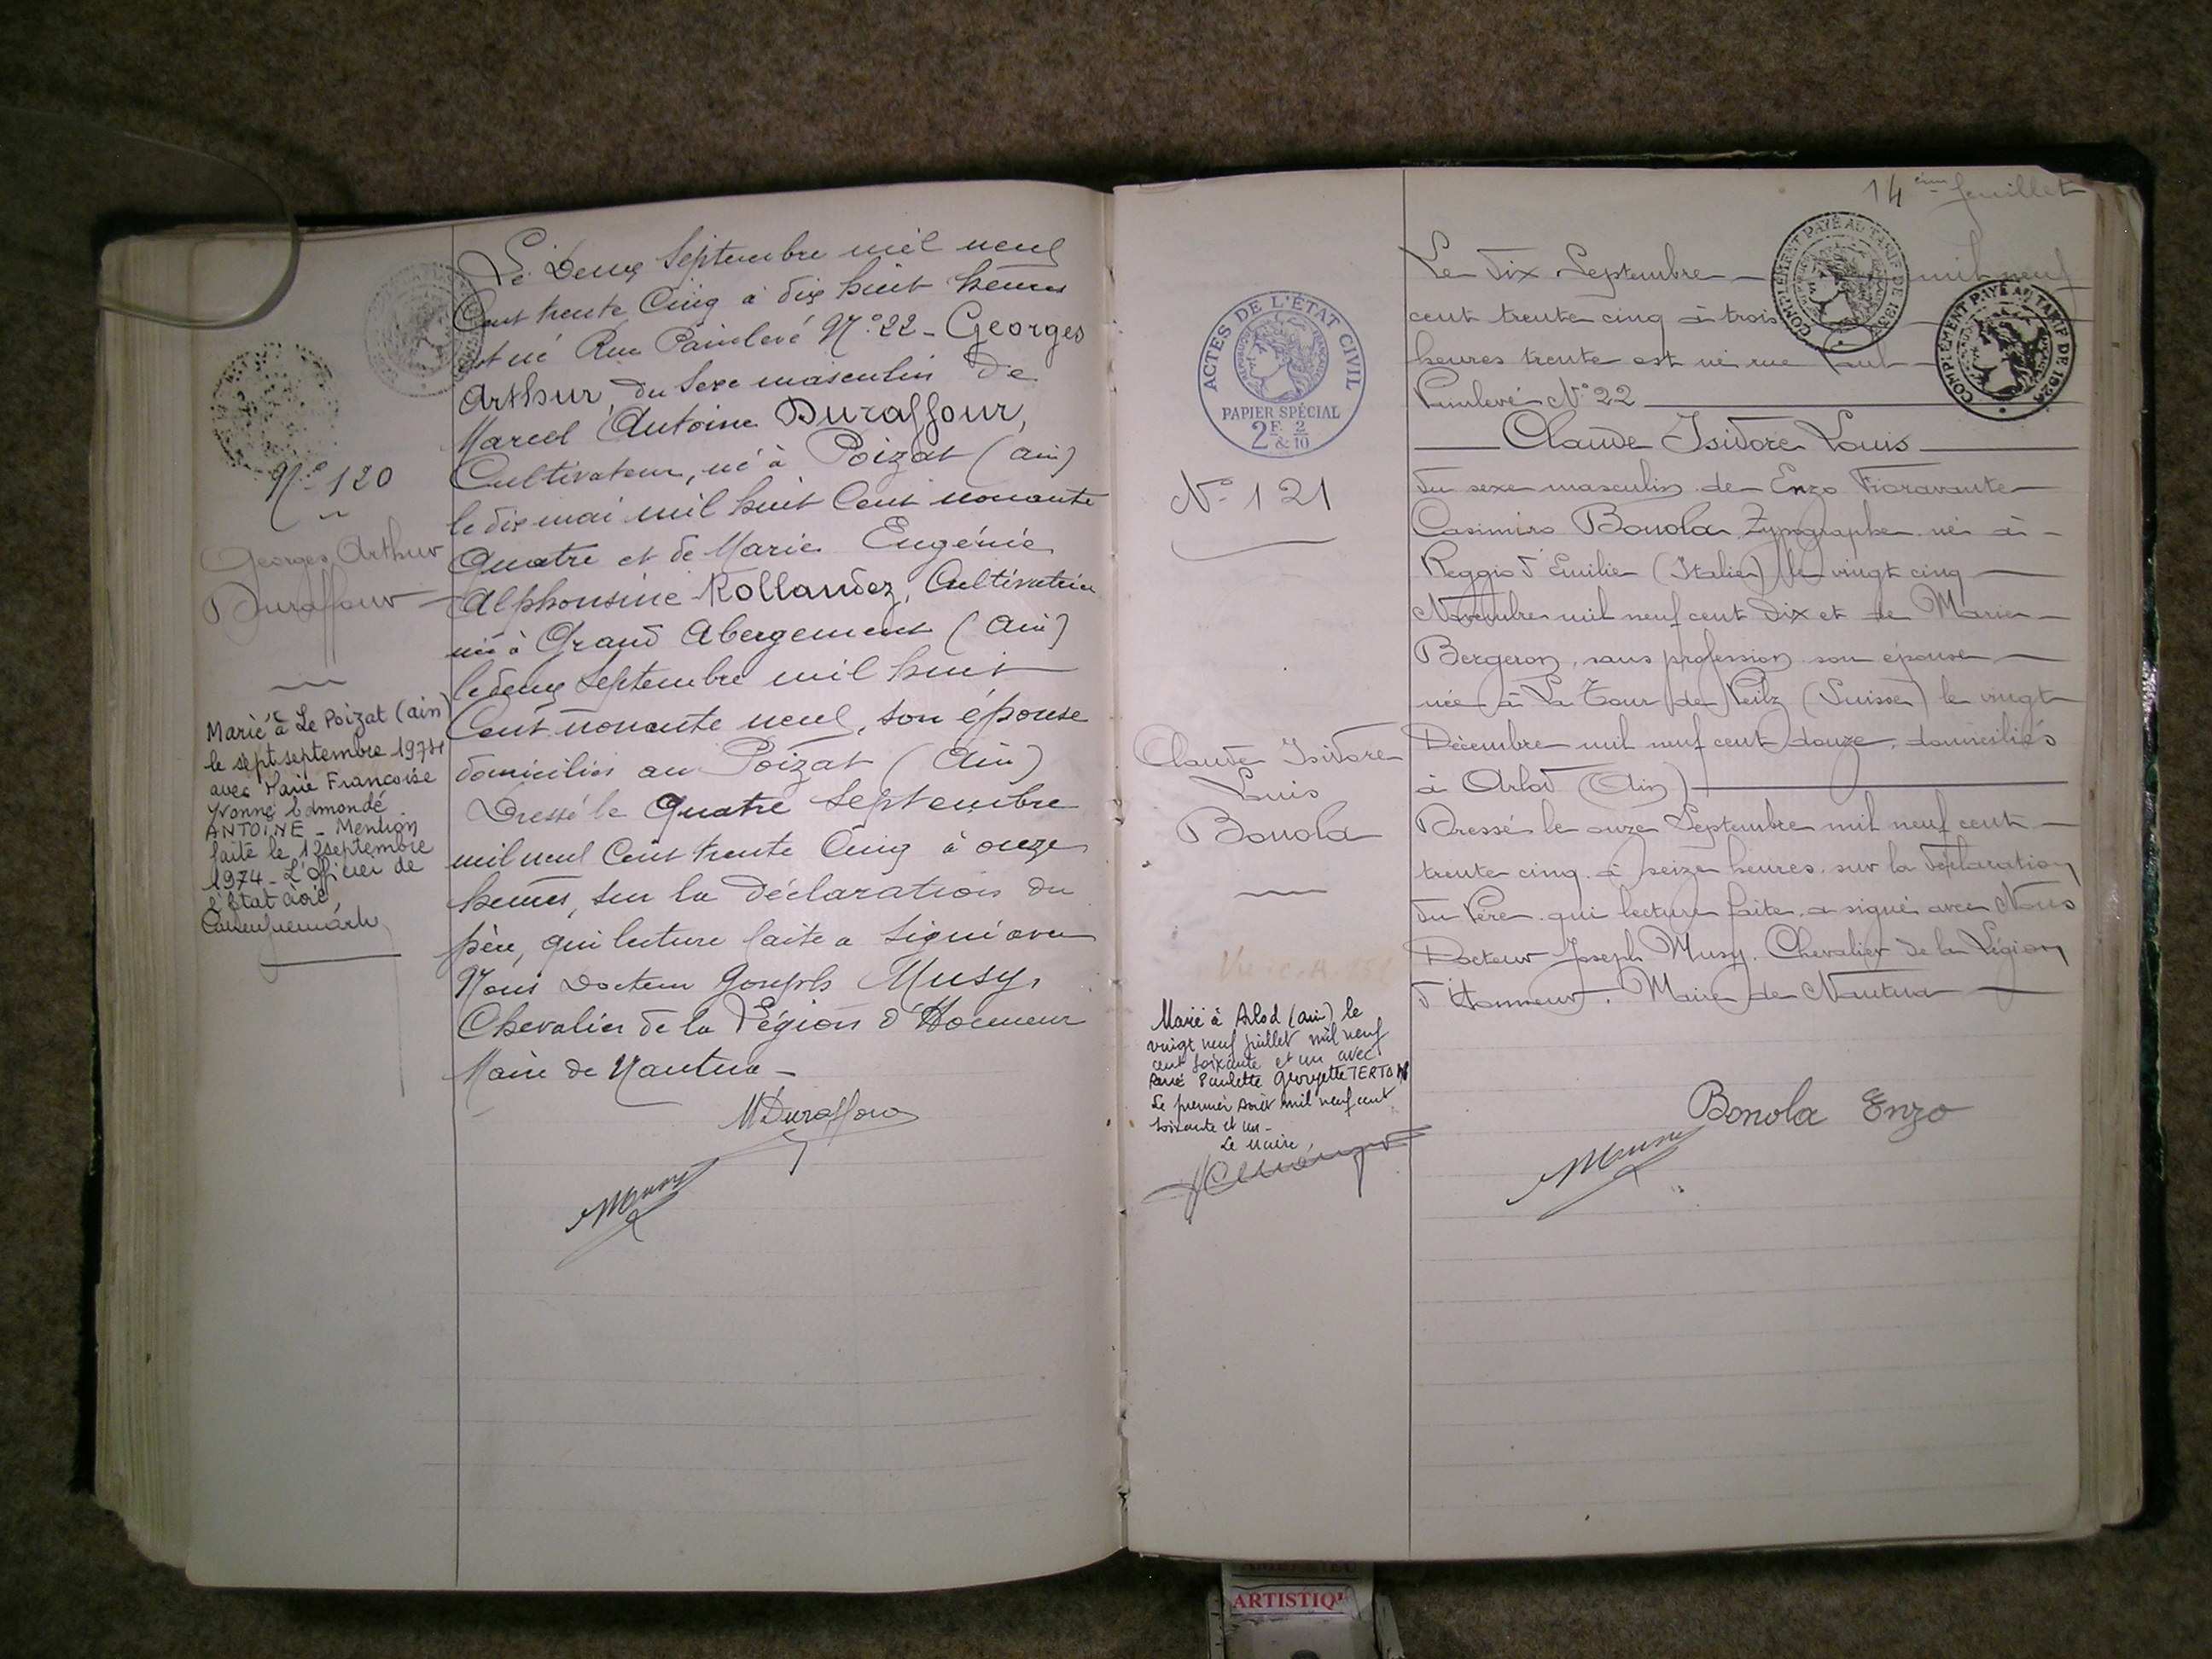 Le Deux Septembre mil neuf
Cent trente Cinq à dix huit heures
est né Rue Painlevé N° 22 - Georges
Arthur, du Sexe masculin de
Marcel Antoine Duraffour,
Cultivateur, né à Poizat (Ain)
le dix mai mil huit Cent nonante
Quatre et de Marie Eugénie
Alphonsine Rollandez, Cultivatrice
née à Grand Abergement (Ain)
le deux Septembre mil huit
Cent nonante neuf, son épouse
domiciliés au Poizat (Ain)
Dressé le Quatre Septembre
mil neuf Cent trente Cinq à onze
heures, sur la déclaration du
père, qui lecture faite a signé avec
Nous Docteur Joseph Musy,
Chevalier de la Légion d'Honneur
Maire de Nantua -
MDuraffour
Musy
N° 120
Georges Arthur
Duraffour
Marié à Le Poizat (ain)
le sept septembre 1974
avec Marie Françoise
Yvonne Edmondé
ANTOINE - Mention
faite le 12 septembre
1974 - L'officier de
l'Etat Civil,
14 ème feuillet
ACTES DE L'ÉTAT CIVIL
PAPIER SPÉCIAL
2F. & 2/10
COMPLÉMENT PAYÉ AU TARIF DE 1925
COMPLÉMENT PAYÉ AU TARIF DE 1925
Le dix Septembre mil neuf
cent trente cinq à trois
heures trente est né rue Paul
Painlevé N° 22
Claude Isidore Louis
du sexe masculin de Enzo Fioravante
Casimiro Bonola Typographe né à
Reggio d'Emilie (Italie) le vingt cinq
Novembre mil neuf cent dix et de Marie
Bergeron, sans profession son épouse
née à La Tour de Peilz (Suisse) le vingt
Décembre mil neuf cent douze, domiciliés
à Arlod (Ain)
Dressé le onze Septembre mil neuf cent
trente cinq à seize heures sur la déclaration
du Père qui lecture faite a signé avec Nous
Docteur Joseph Musy. Chevalier de la Légion
d'Honneur. Maire de Nantua
Bonola Enzo
Musy
N° 121
Claude Isidore
Louis
Bonola
Marié à Arlod (ain) le
vingt neuf juillet mil neuf
cent soixante et un avec
Paulette Georgette TERTON
Le premier Août mil neuf cent
soixante et un -
Le Maire,
ARTISTIQ